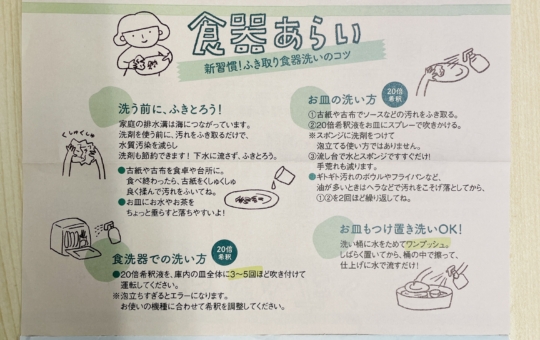 食器あらい
新習慣！ふき取り食器洗いのコツ
洗う前に、ふきとろう！
家庭の排水溝は海につながっています。
洗剤を使う前に、汚れをふき取るだけで、
水質汚染を減らし
洗剤も節約できます！下水に流さず、ふきとろう。
くしゅくしゅ
●古紙や古布を食卓や台所に。
食べ終わったら、古紙をくしゅくしゅ
良く揉んで汚れをふいてね。
●お皿にお水やお茶を
ちょっと垂らすと落ちやすいよ！
食洗器での洗い方
20倍
希釈
●20倍希釈液を、庫内の皿全体に3〜5回ほど吹き付けて
運転してください。
※泡立ちすぎるとエラーになります。
お使いの機種に合わせて希釈を調整してください。
お皿の洗い方
20倍
希釈
①古紙や古布でソースなどの汚れをふき取る。
②20倍希釈液をお皿にスプレーで吹きかける。
※スポンジに洗剤をつけて
泡立てる使い方ではありません。
③流し台で水とスポンジですすぐだけ！
手荒れも減ります。
●ギトギト汚れのボウルやフライパンなど、
油が多いときはヘラなどで汚れをこそげ落としてから、
①②を2回ほど繰り返してね。
お皿もつけ置き洗いOK！
洗い桶に水をためてワンプッシュ。
しばらく置いてから、桶の中で擦って、
仕上げに水で流すだけ！